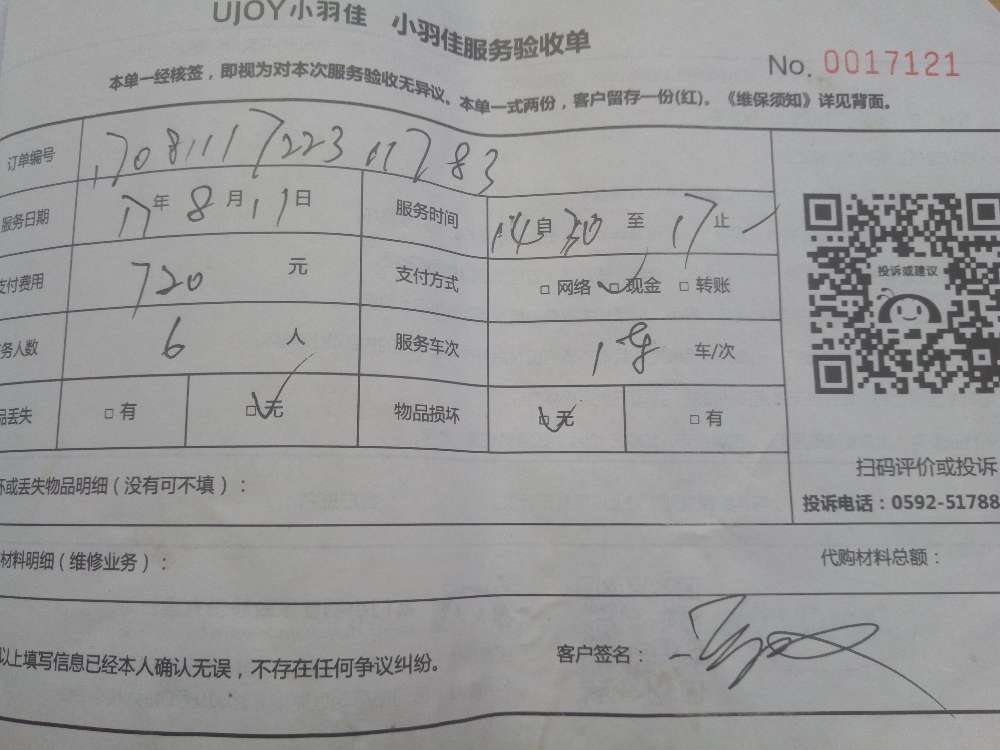 UJOY小羽佳 小羽佳服务验收单
No. 0017121
本单一经核签，即视为对本次服务验收无异议。本单一式两份，客户留存一份(红)。《维保须知》详见背面。
订单编号 170811172231783
服务日期 17年8月11日 服务时间 14自30至17止
支付费用 720元 支付方式 □网络 □现金 □转账
务人数 6人 服务车次 1 车/次
品丢失 □有 □无 物品损坏 □无 □有
投诉或建议
扫码评价或投诉
坏或丢失物品明细（没有可不填）：
投诉电话：0592-51788
材料明细（维修业务）： 代购材料总额：
以上填写信息已经本人确认无误，不存在任何争议纠纷。 客户签名：